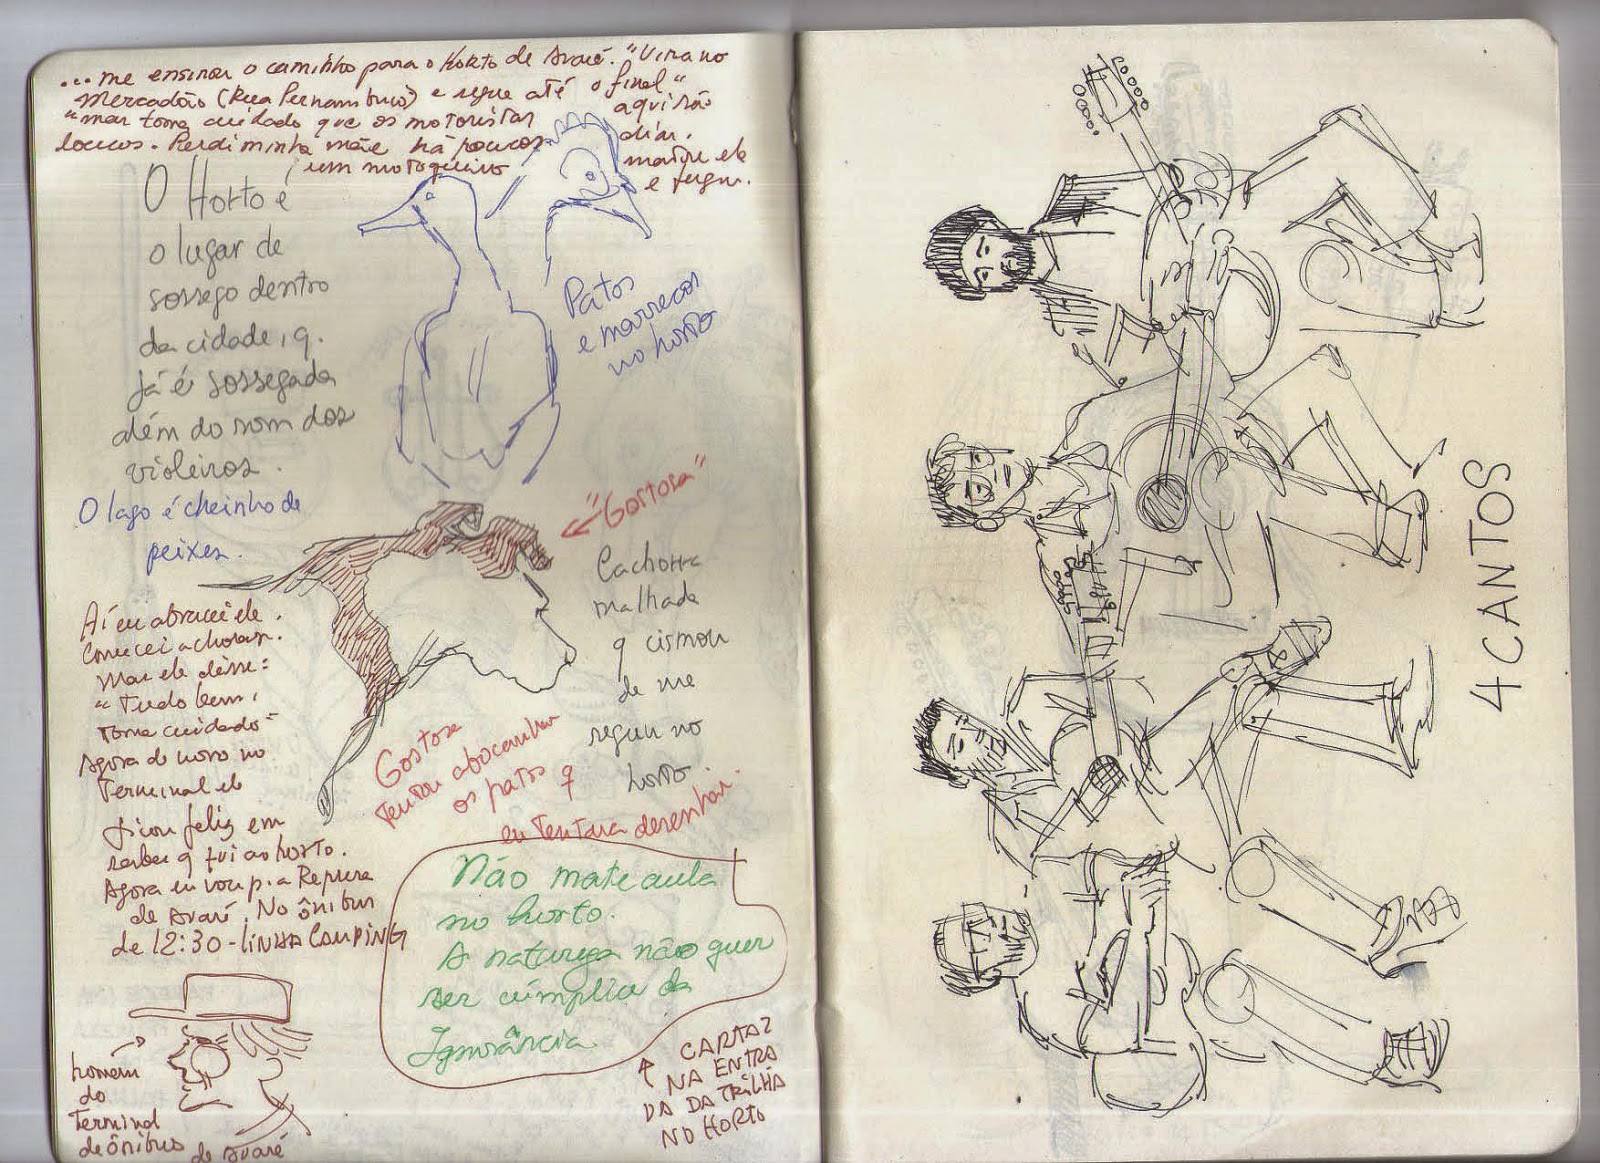 ... me ensinou o caminho para o Horto de Avaré. "Vira no
Mercadão (Rua Pernambuco) e segue até o final"
"mas toma cuidado que os motoristas aqui são
loucos. Perdi minha mãe há poucos dias.
um motoqueiro matou ela
e fugiu.
O Horto é
o lugar de
sossego dentro
da cidade, q.
já é sossegada
além do som dos
violeiros.
O lago é cheinho de
peixes.
Patos
e marrecos
no horto
"Gostosa"
Cachorra
malhada
q cismou
de me
seguir no
horto.
Gostosa
tentou abocanhar
os patos q
eu tentava desenhar.
Aí eu abracei ele.
Comecei a chorar.
Mas ele disse:
"Tudo bem,
toma cuidado"
Agora de novo no
Terminal ele
ficou feliz em
saber q fui ao horto.
Agora eu vou p/ a Represa
de Avaré. No ônibus
de 12:30 - LINHA CAMPING
Não mate aula
no horto.
A natureza não quer
ser cúmplice da
Ignorância
CARTAZ
NA ENTRA
DA DA TRILHA
NO HORTO
homem
do
Terminal
de ônibus
de Avaré
4 CANTOS